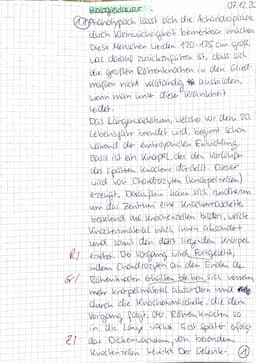 Biologieklausur 07.12.20
① Phänotypisch lässt sich die Achondroplasie
durch Kleinwüchsigkeit bemerkbar machen.
Diese Menschen werden 120-135 cm groß,
was darauf zurückzuführen ist, dass sich
die großen Röhrenknochen in den Glied-
maßen nicht vollständig ausbilden,
wenn man unter dieser Krankheit
leidet.
Das Längenwachstum, welche vor dem 20.
Lebensjahr beendet wird, beginnt schon
während der embryonalen Entwicklung.
Basis ist ein Knorpel, der den Vorläufer
des späten Knochens darstellt. Dieser
wird von Chondrozyten (Knorpelzellen)
erzeugt. Daraufhin kann sich rundherum
um das Zentrum eine Knochenmanschette
bestehend aus Knochenzellen bilden, welche
Knochenmaterial nach innen absondert
und somit den dort liegenden Knorpel
R| ersetzt. Der Vorgang wird fortgesetzt,
indem Chondrozyten an den Enden der
Gr| Röhrenknochen erhalten bleiben, sich
mehr Knorpelmaterial absondern und
durch die Knochenmanschette, die dem
Vorgang folgt, der Röhrenknochen so
in die Länge wächst. Erst später erfolgt
Z| das Dickenwachstum, von besonderen
Knochenzellen bewirkt. Der Gelenk- ①